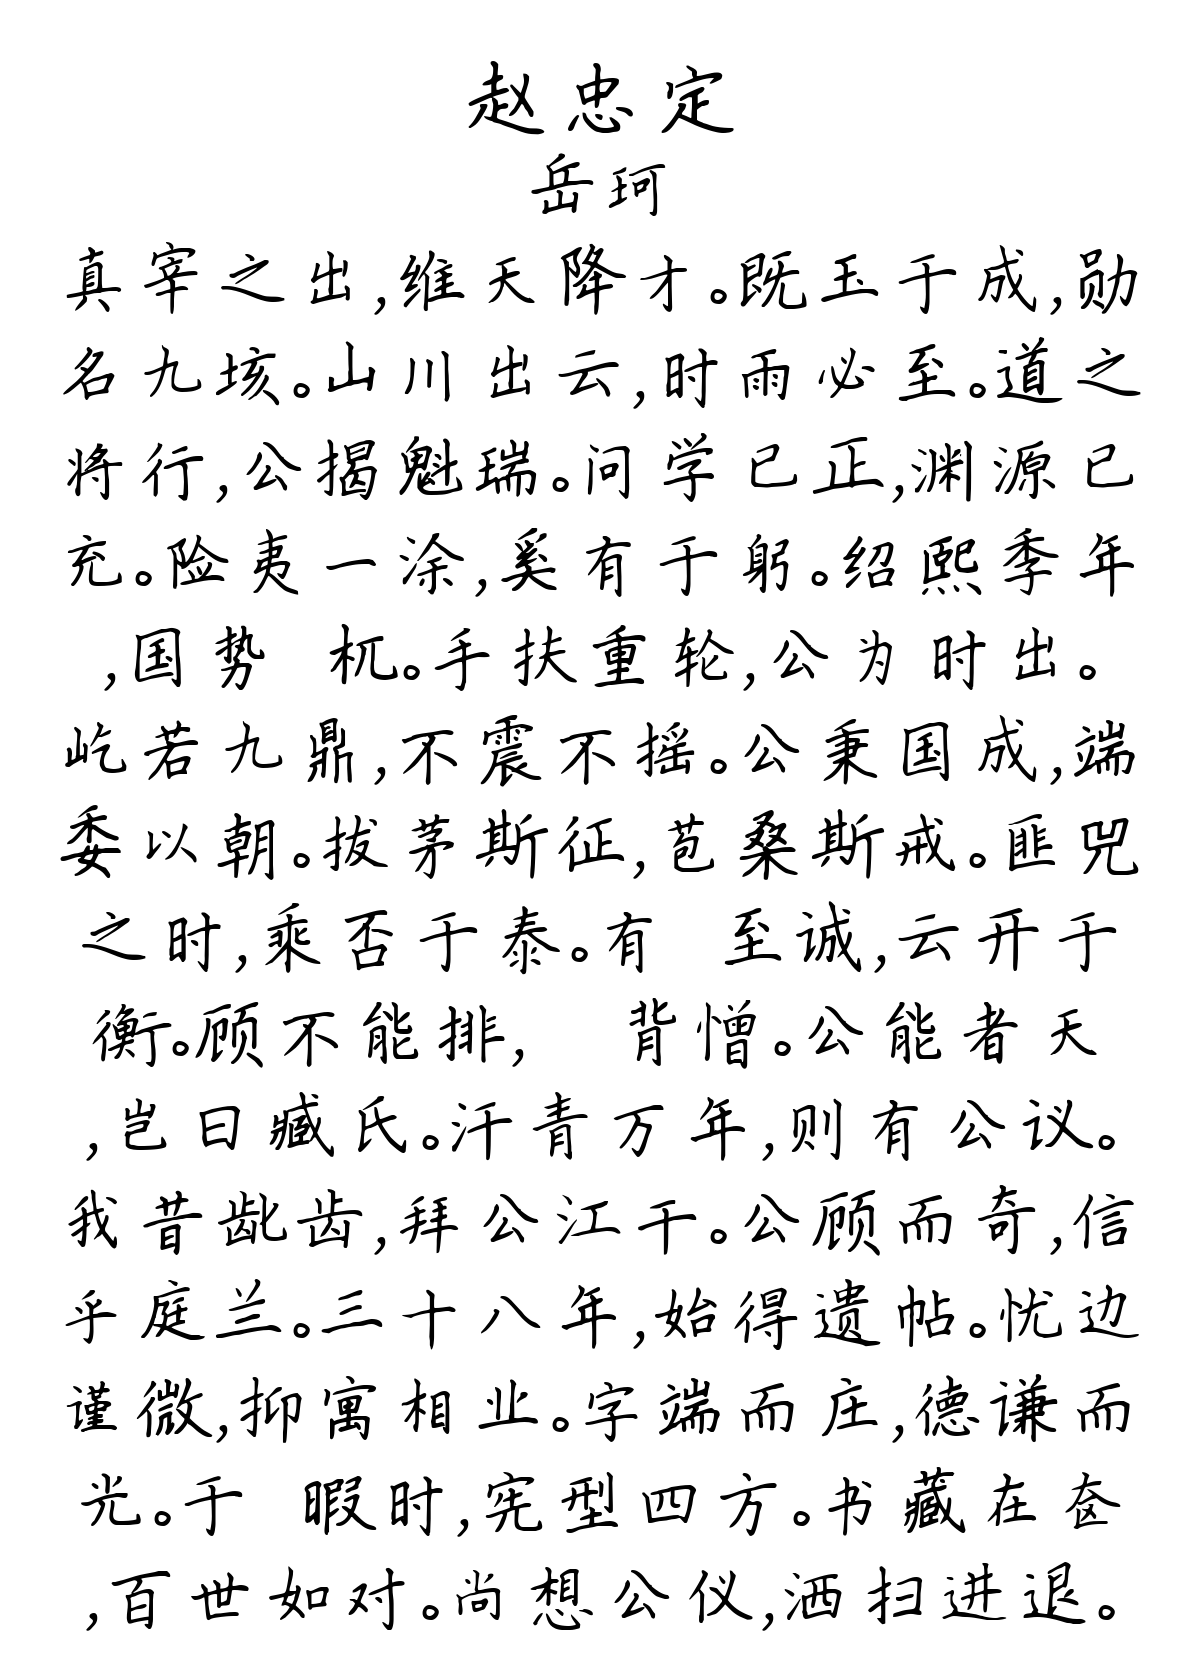 赵忠定
岳珂
真宰之出,维天降才。既玉于成,勋
名九垓。山川出云,时雨必至。道之
将行,公揭魁瑞。问学已正,渊源已
充。险夷一涂,奚有于躬。绍熙季年
,国势 杌。手扶重轮,公为时出。
屹若九鼎,不震不摇。公秉国成,端
委以朝。拔茅斯征,苞桑斯戒。匪兕
之时,乘否于泰。有 至诚,云开于
衡。顾不能排, 背憎。公能者天
,岂曰臧氏。汗青万年,则有公议。
我昔龀齿,拜公江干。公顾而奇,信
乎庭兰。三十八年,始得遗帖。忧边
谨微,抑寓相业。字端而庄,德谦而
光。于 暇时,宪型四方。书藏在奁
,百世如对。尚想公仪,洒扫进退。